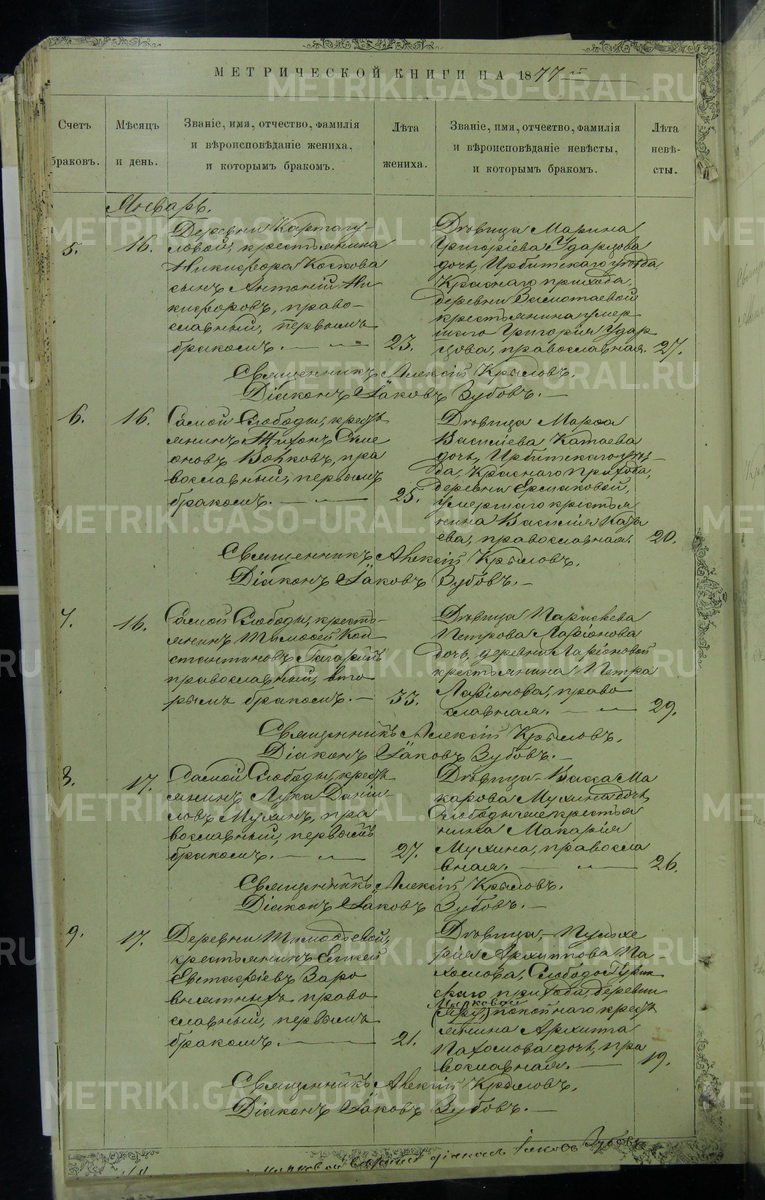 МЕТРИЧЕСКОЙ КНИГИ НА 1877
Счетъ браковъ.
Мѣсяцъ и день.
Званіе, имя, отчество, фамилія и вѣроисповѣданіе жениха, и которымъ бракомъ.
Лѣта жениха.
Званіе, имя, отчество, фамилія и вѣроисповѣданіе невѣсты, и которымъ бракомъ.
Лѣта невѣсты.
Январь.
5.
16.
Деревни
крестьянина
Никифора Коскова
сынъ Антоній Ни-
кифоровъ, право-
славный, первымъ
бракомъ.
23.
Дѣвица Марина
Григоріева Ударцова
дочь, Ирбитскаго уѣзда
Краснаго прихода,
деревни
крестьянина умер-
шаго Григорія Удар-
цова, православная.
27.
Священникъ Алексій Крыловъ.
Діаконъ Іаковъ Зубовъ.
6.
16.
Самой Слободы, кресть-
янинъ Тихонъ Симе-
оновъ пра-
вославный, первымъ
бракомъ.
25.
Дѣвица Марѳа
Васильева Катаева
дочь, Ирбитскаго уѣз-
да, Краснаго прихода,
деревни Ермаковой,
умершаго крестья-
нина Василія Ката-
ева, православная.
20.
Священникъ Алексій Крыловъ.
Діаконъ Іаковъ Зубовъ.
7.
16.
Самой Слободы, кресть-
янинъ Тимоѳей Кон-
стантиновъ
православный, вто-
рымъ бракомъ.
33.
Дѣвица Параскева
Петрова Ларіонова
дочь, деревни Ларіоновой
крестьянина Петра
Ларіонова, право-
славная.
29.
Священникъ Алексій Крыловъ.
Діаконъ Іаковъ Зубовъ.
8.
17.
Самой Слободы, кресть-
янинъ Лука Даніи-
ловъ Мухинъ, пра-
вославный, первымъ
бракомъ.
27.
Дѣвица Васса Ма-
карова Мухина дочь,
крестья-
нина Макарія
Мухина, правосла-
вная.
26.
Священникъ Алексій Крыловъ.
Діаконъ Іаковъ Зубовъ.
9.
17.
Деревни Тимоѳеевой,
крестьянинъ
православный, первымъ
бракомъ.
21.
Дѣвица Пульхе-
рія Архиппова Па-
хомова,
прихода, деревни
покойнаго кресть-
янина Архиппа
Пахомова дочь, пра-
вославная.
19.
Священникъ Алексій Крыловъ.
Діаконъ Іаковъ Зубовъ.
діаконъ Іаковъ Зубовъ
METRIKI.GASO-URAL.RU